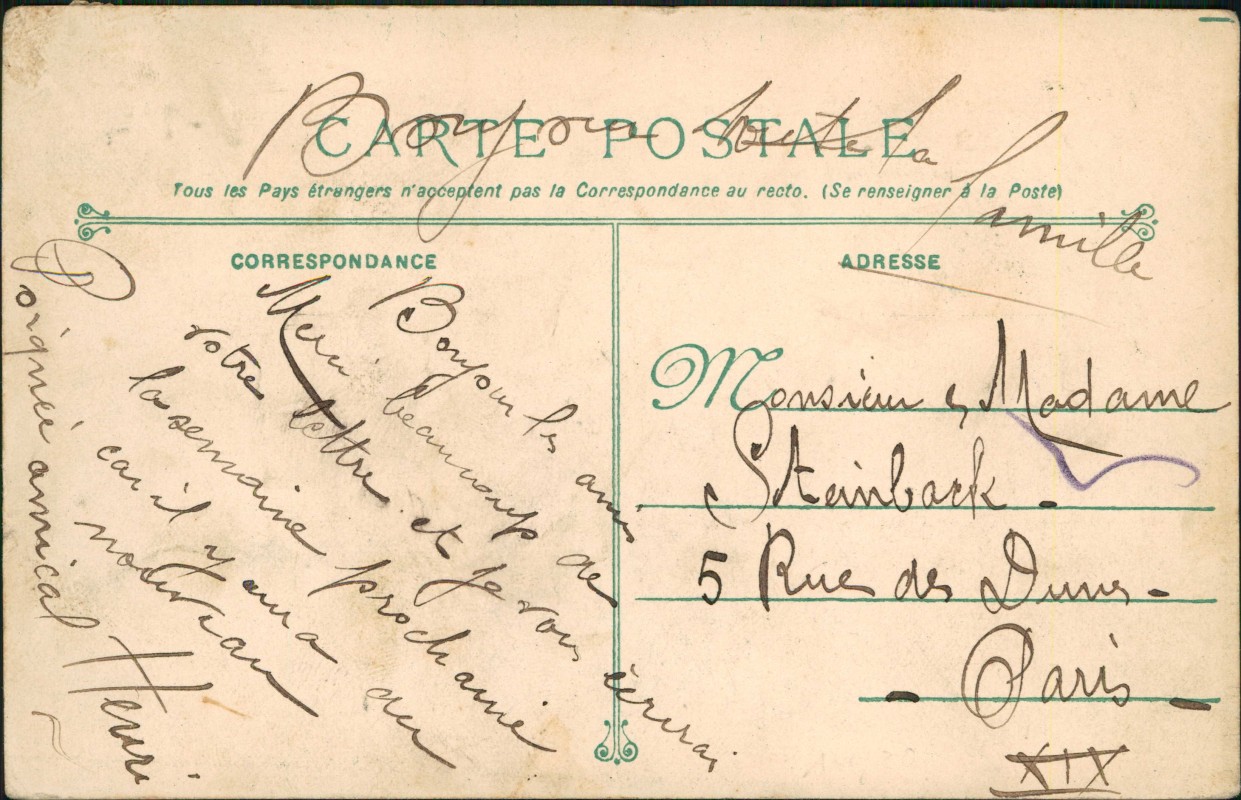 CARTE POSTALE
Bonjour toute la
famille
Tous les Pays étrangers n'acceptent pas la Correspondance au recto. (Se renseigner à la Poste)
CORRESPONDANCE
Bonjour les amis
Merci beaucoup de
votre lettre et je vous écrirai
la semaine prochaine
car il y aura du
nouveau
Poignée amical
Henri
ADRESSE
Monsieur & Madame
Steinback
5 Rue des Dunes
Paris
XIX